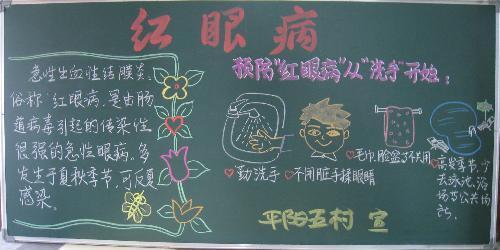 红眼病
急性出血性结膜炎,
俗称"红眼病,是由肠
道病毒引起的传染性
很强的急性眼病,多
发生于夏秋季节,可反复
感染。
预防"红眼病"从"洗手"开始:
勤洗手
不用脏手揉眼睛
毛巾、脸盆不共用
高发季节,少
去泳池、浴
场等公共场
所。
平阳五村 宣